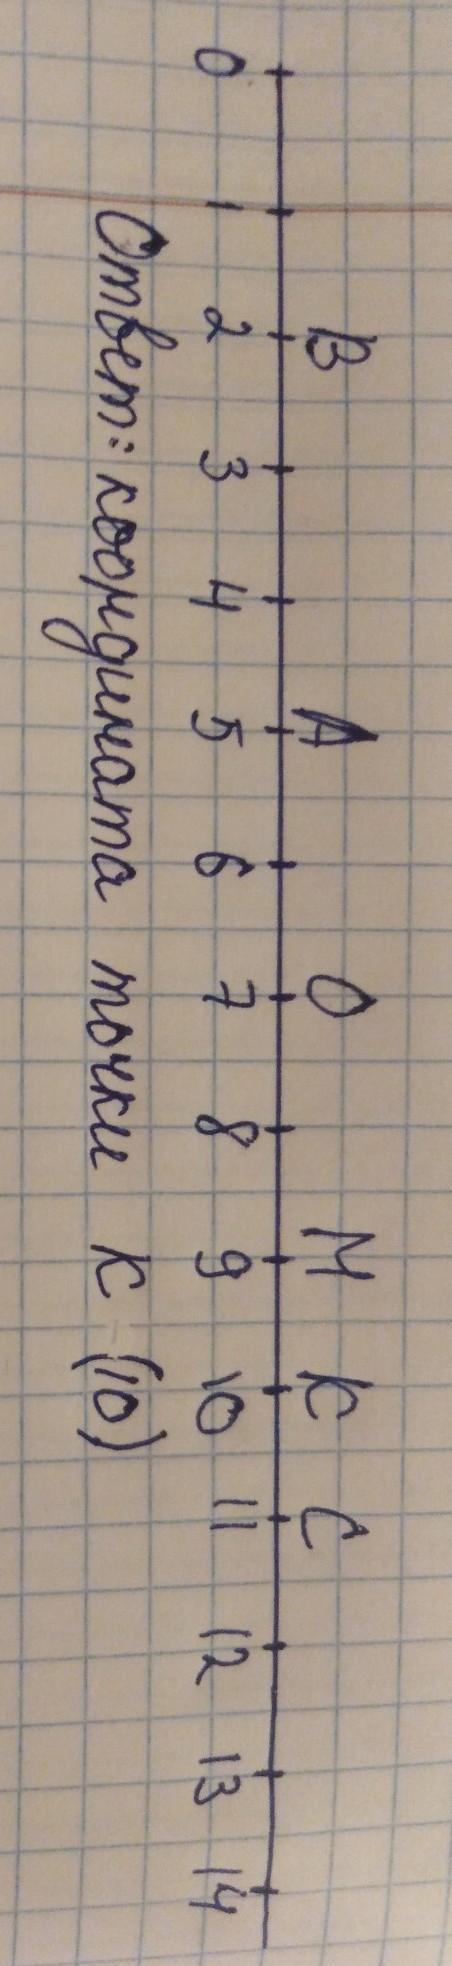 В А О М К С
0 1 2 3 4 5 6 7 8 9 10 11 12 13 14
Ответ: координата точки К (10)